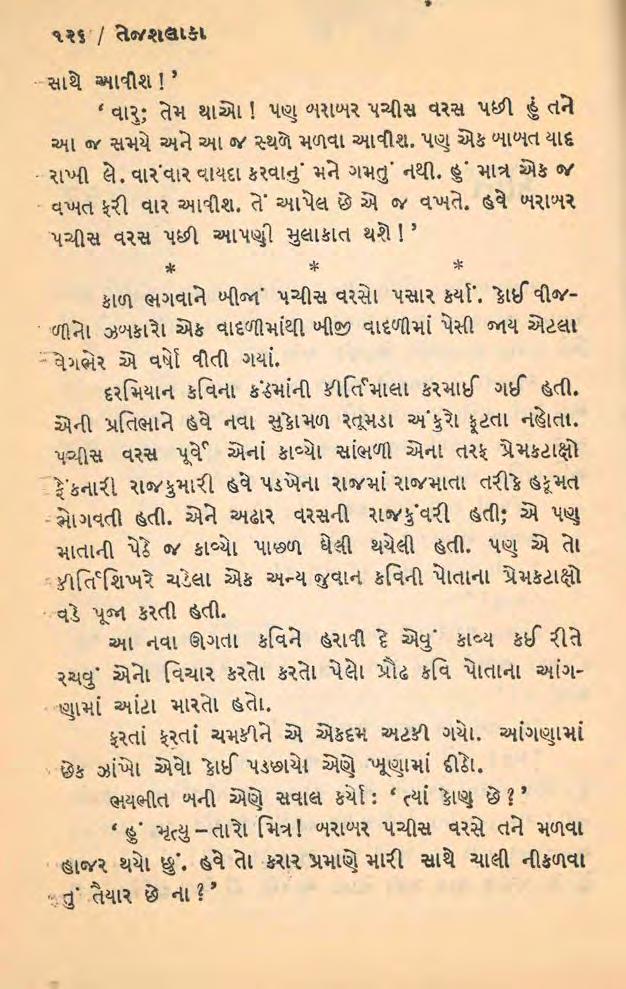 ૧૨૬ / તેજશલાકા
સાથે આવીશ !’
‘ વારુ; તેમ થાઓ ! પણ બરાબર પચીસ વરસ પછી હું તને
આ જ સમયે અને આ જ સ્થળે મળવા આવીશ. પણ એક બાબત યાદ
રાખી લે. વારંવાર વાયદા કરવાનું મને ગમતું નથી. હું માત્ર એક જ
વખત ફરી વાર આવીશ. તેં આપેલ છે એ જ વખતે. હવે બરાબર
પચીસ વરસ પછી આપણી મુલાકાત થશે ! ’
* * *
કાળ ભગવાને બીજાં પચીસ વરસો પસાર કર્યાં. કોઈ વીજ-
ળીનો ઝબકારો એક વાદળીમાંથી બીજી વાદળીમાં પેસી જાય એટલા
વેગભેર એ વર્ષો વીતી ગયાં.
દરમિયાન કવિના કંઠમાંની કીર્તિમાલા કરમાઈ ગઈ હતી.
એની પ્રતિભાને હવે નવા સુકોમળ રતૂમડા અંકુરો ફૂટતા નહોતા.
પચીસ વરસ પૂર્વે એનાં કાવ્યો સાંભળી એના તરફ પ્રેમકટાક્ષો
ફેંકનારી રાજકુમારી હવે પડખેના રાજમાં રાજમાતા તરીકે હકૂમત
ભોગવતી હતી. એને અઢાર વરસની રાજકુંવરી હતી; એ પણ
માતાની પેઠે જ કાવ્યો પાછળ ઘેલી થયેલી હતી. પણ એ તો
કીર્તિશિખરે ચડેલા એક અન્ય જુવાન કવિની પોતાના પ્રેમકટાક્ષો
વડે પૂજા કરતી હતી.
આ નવા ઊગતા કવિને હરાવી દે એવું કાવ્ય કઈ રીતે
રચવું એનો વિચાર કરતો કરતો પેલો પ્રૌઢ કવિ પોતાના આંગ-
ણામાં આંટા મારતો હતો.
ફરતાં ફરતાં ચમકીને એ એકદમ અટકી ગયો. આંગણામાં
છેક ઝાંખો એવો કોઈ પડછાયો એણે ખૂણામાં દીઠો.
ભયભીત બની એણે સવાલ કર્યો : ‘ ત્યાં કોણ છે ? ’
‘ હું મૃત્યુ – તારો મિત્ર! બરાબર પચીસ વરસે તને મળવા
હાજર થયો છું. હવે તો કરાર પ્રમાણે મારી સાથે ચાલી નીકળવા
તું તૈયાર છે ના ? ’